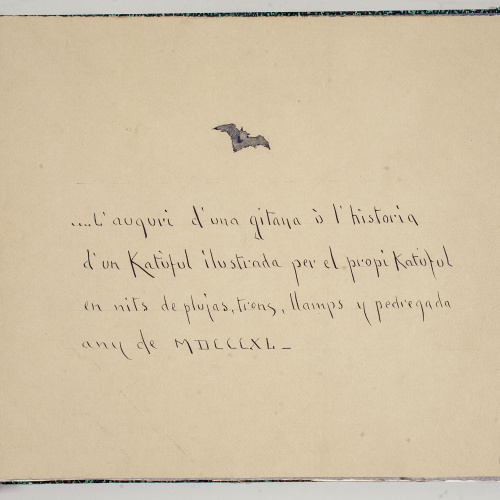 ....L'auguri d'una gitana ò l'historia
d'un Katùful ilustrada per el propi Katùful
en nits de plujas, trons, llamps y pedregada
any de MDCCCXL_